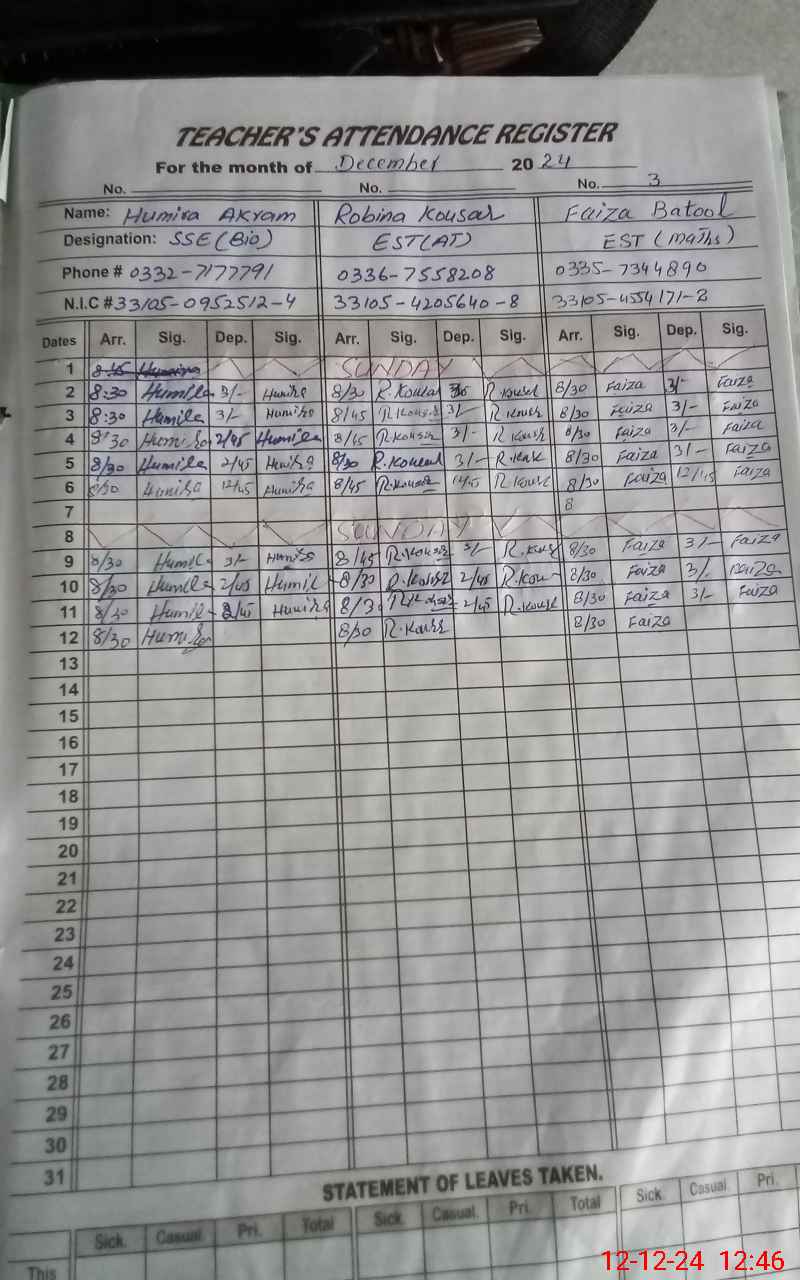 TEACHER'S ATTENDANCE REGISTER
For the month of December 2024
No. No. No. 3
Name: Humira Akram Robina Kousar Faiza Batool
Designation: SSE (Bio) EST (AT) EST (Maths)
Phone # 0332-7177791 0336-7558208 0335-7344890
N.I.C # 33105-0952512-4 33105-4205640-8 33105-4554171-2
Dates Arr. Sig. Dep. Sig. Arr. Sig. Dep. Sig. Arr. Sig. Dep. Sig.
1 8:45 Humira SUNDAY
2 8:30 Humira 3/- Humira 8/30 R.Kousar R.Kousar 8/30 Faiza 3/- Faiza
3 8:30 Humira 3/- Humira 8/45 R.Kousar 3/- R.Kousar 8/30 Faiza 3/- Faiza
4 8/30 Humira 2/45 Humira 8/45 R.Kousar 3/- R.Kousar 8/30 Faiza 3/- Faiza
5 8/30 Humira 2/45 Humira 8/30 R.Kousar 3/- R.Kousar 8/30 Faiza 3/- Faiza
6 8/30 Humira 12/45 Humira 8/45 R.Kousar 12/45 R.Kousar 8/30 Faiza 12/45 Faiza
7 8
8 SUNDAY
9 8/30 Humira 3/- Humira 8/45 R.Kousar 3/- R.Kousar 8/30 Faiza 3/- Faiza
10 8/30 Humira 2/45 Humira 8/30 R.Kousar 2/45 R.Kousar 8/30 Faiza 3/- Faiza
11 8/30 Humira 2/45 Humira 8/30 R.Kousar 2/45 R.Kousar 8/30 Faiza 3/- Faiza
12 8/30 Humira 8/30 R.Kousar 8/30 Faiza
13
14
15
16
17
18
19
20
21
22
23
24
25
26
27
28
29
30
31
STATEMENT OF LEAVES TAKEN.
Sick. Casual. Pri. Total Sick. Casual. Pri. Total Sick. Casual. Pri.
This
12-12-24 12:46